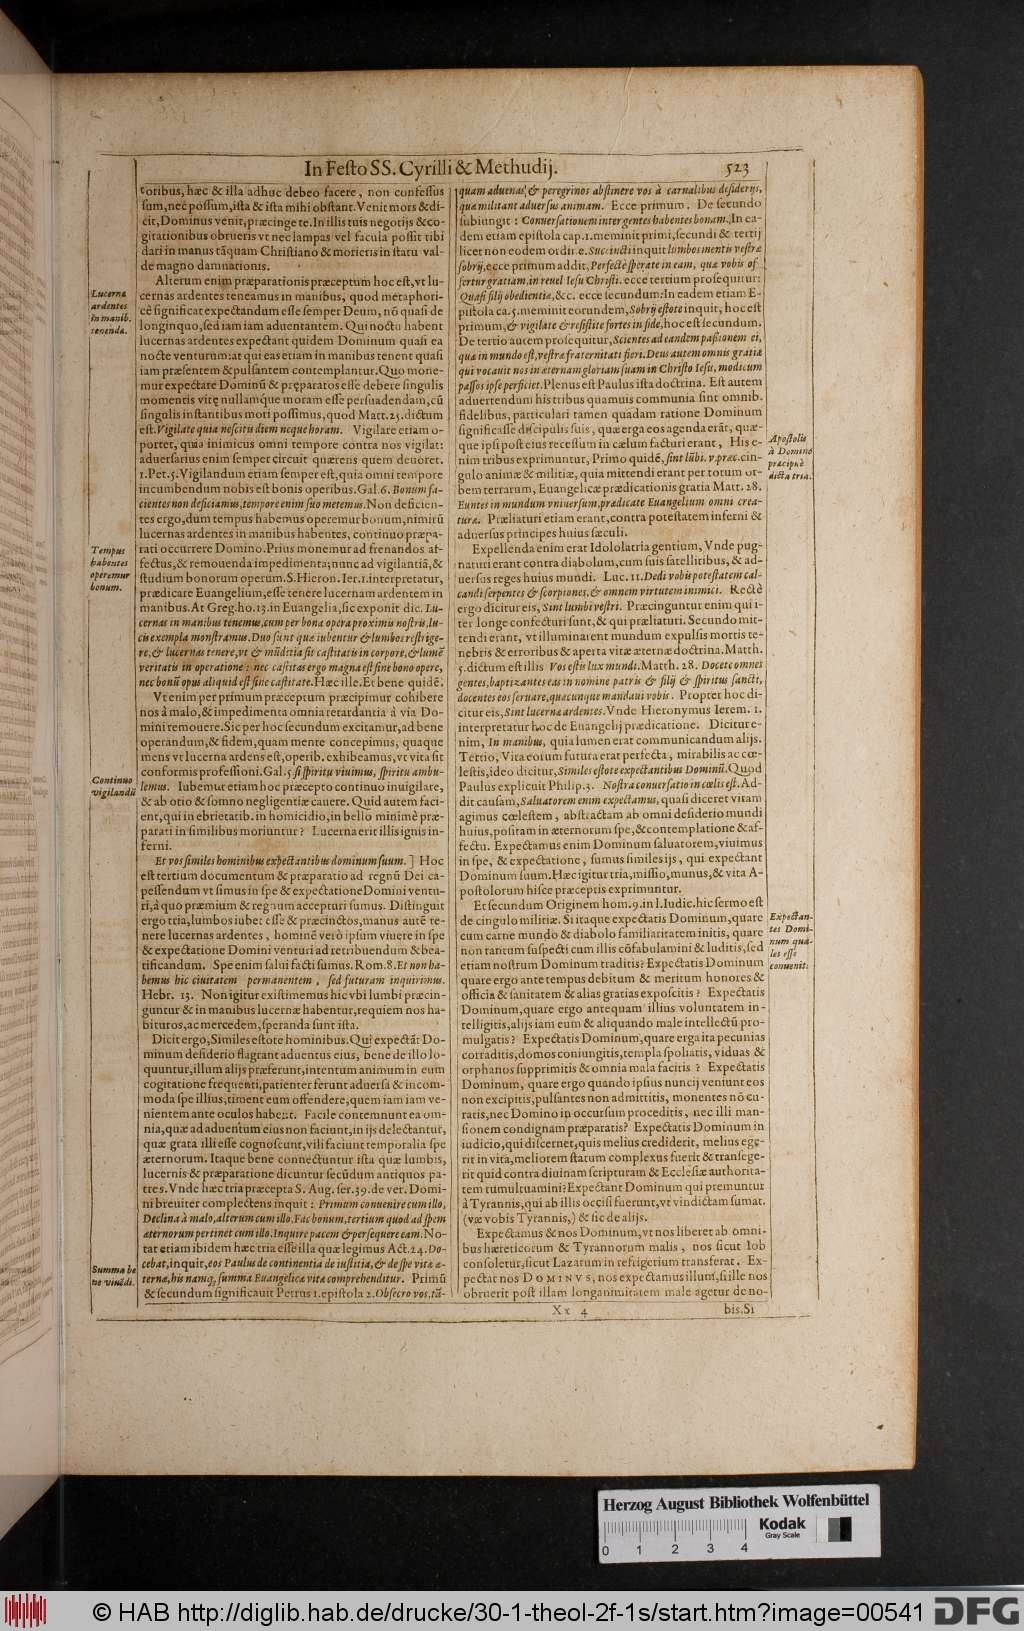 In Festo SS. Cyrilli & Methudij. 523
toribus, hæc & illa adhuc debeo facere, non confessus
sum, nec possum, ista & ista mihi obstant. Venit mors & di-
cit, Dominus venit, præcinge te. In illis tuis negotijs & co-
gitationibus obrueris vt nec lampas vel facula possit tibi
dari in manus tãquam Christiano & morieris in statu val-
de magno damnationis.
Alterum enim præparationis præceptum hoc est, vt lu-
cernas ardentes teneamus in manibus, quod metaphori-
cè significat expectandum esse semper Deum, nõ quasi de
longinquo, sed iam iam aduentantem. Qui noctu habent
lucernas ardentes expectant quidem Dominum quasi ea
nocte venturum: at qui eas etiam in manibus tenent quasi
iam præsentem & pulsantem contemplantur. Quo mone-
mur expectare Dominũ & pręparatos esse debere singulis
momentis vitę nullamque moram esse persuadendam, cũ
singulis instantibus mori possimus, quod Matt. 25. dictum
est. Vigilate quia nescitis diem neque horam. Vigilare etiam o-
portet, quia inimicus omni tempore contra nos vigilat:
aduersarius enim semper circuit quærens quem deuoret.
1. Pet. 5. Vigilandum etiam semper est, quia omni tempore
incumbendum nobis est bonis operibus. Gal. 6. Bonum fa-
cientes non deficiamus, tempore enim suo metemus. Non deficien-
tes ergo, dum tempus habemus operemur bonum, nimirũ
lucernas ardentes in manibus habentes, continuo præpa-
rati occurrere Domino. Prius monemur ad frenandos af-
fectus, & remouenda impedimenta; nunc ad vigilantiã, &
studium bonorum operum. S. Hieron. Ier. 1. interpretatur,
prædicare Euangelium, esse tenere lucernam ardentem in
manibus. At Greg. ho. 13. in Euangelia, sic exponit dic. Lu-
cernas in manibus tenemus, cum per bona opera proximis nostris, lu-
cis exempla monstramus. Duo sunt quæ iubentur & lumbos restrige-
re, & lucernas tenere, vt & mũditia sit castitatis in corpore, & lumẽ
veritatis in operatione: nec castitas ergo magna est sine bono opere,
nec bonũ opus aliquid est sine castitate. Hæc ille. Et bene quidẽ.
Vt enim per primum præceptum præcipimur cohibere
nos à malo, & impedimenta omnia retardantia à via Do-
mini remouere. Sic per hoc secundum excitamur, ad bene
operandum, & fidem, quam mente concepimus, quaque
mens vt lucerna ardens est, operib. exhibeamus, vt vita sit
conformis professioni. Gal. 5. si spiritu viuimus, spiritu ambu-
lemus. Iubemur etiam hoc præcepto continuo inuigilare,
& ab otio & somno negligentiæ cauere. Quid autem faci-
ent, qui in ebrietatib. in homicidio, in bello minimè præ-
parati in similibus moriuntur? Lucerna erit illis ignis in-
ferni.
Et vos similes hominibus expectantibus dominum suum.] Hoc
est tertium documentum & præparatio ad regnũ Dei ca-
pessendum vt simus in spe & expectatione Domini ventu-
ri, à quo præmium & regnum accepturi sumus. Distinguit
ergo tria, lumbos iubet esse & præcinctos, manus autẽ te-
nere lucernas ardentes, hominẽ verò ipsum viuere in spe
& expectatione Domini venturi ad retribuendum & bea-
tificandum. Spe enim salui facti sumus. Rom. 8. Et non ha-
bemus hic ciuitatem permanentem, sed futuram inquirimus.
Hebr. 13. Non igitur existimemus hic vbi lumbi præcin-
guntur & in manibus lucernæ habentur, requiem nos ha-
bituros, ac mercedem, speranda sunt ista.
Dicit ergo, Similes estote hominibus. Qui expectãt Do-
minum desiderio flagrant aduentus eius, bene de illo lo-
quuntur, illum alijs præferunt, intentum animum in eum
cogitatione frequenti, patienter ferunt aduersa & incom-
moda spe illius, timent eum offendere, quem iam iam ve-
nientem ante oculos habent. Facile contemnunt ea om-
nia, quæ ad aduentum eius non faciunt, in ijs delectantur,
quæ grata illi esse cognoscunt, vili faciunt temporalia spe
æternorum. Itaque bene connectuntur ista quæ lumbis,
lucernis & præparatione dicuntur secũdum antiquos pa-
tres. Vnde hæc tria præcepta S. Aug. ser. 39. de ver. Domi-
ni breuiter complectens inquit: Primum conuenire cum illo,
Declina à malo, alterum cum illo. Fac bonum, tertium quod ad spem
æternorum pertinet cum illo. Inquire pacem & persequere eam. No-
tat etiam ibidem hæc tria esse illa quæ legimus Act. 24. Do-
cebat, inquit, eos Paulus de continentia de iustitia, & de spe vitæ æ-
ternæ, his namq; summa Euangelicæ vitæ comprehenditur. Primũ
& secundum significauit Petrus 1. epistola 2. Obsecro vos, tã-
Lucernæ
ardentes
in manib.
tenendæ.
Tempus
habentes
operemur
bonum.
Continuo
vigilandũ
Summa be
ne viuẽdi.
quam aduenas, & peregrinos abstinere vos à carnalibus desiderijs,
quæ militant aduersus animam. Ecce primum. De secundo
subiungit: Conuersationem inter gentes habentes bonam. In ea-
dem etiam epistola cap. 1. meminit primi, secundi & tertij
licet non eodem ordine. Succincti inquit lumbos mentis vestræ
sobrij, ecce primum addit. Perfectè sperate in eam, quæ vobis of-
fertur gratiam, in reuel. Iesu Christi. ecce tertium prosequitur:
Quasi filij obedientiæ, &c. ecce secundum: In eadem etiam E-
pistola ca. 5. meminit eorundem, Sobrij estote inquit, hoc est
primum, & vigilate & resistite fortes in fide, hoc est secundum.
De tertio autem prosequitur, Scientes ad eandem passionem ei,
quæ in mundo est, vestræ fraternitati fieri. Deus autem omnis gratiæ
qui vocauit nos in æternam gloriam suam in Christo Iesu, modicum
passos ipse perficiet. Plenus est Paulus ista doctrina. Est autem
aduertendum his tribus quamuis communia sint omnib.
fidelibus, particulari tamen quadam ratione Dominum
significasse discipulis suis, quæ erga eos agenda erãt, quæ-
que ipsi post eius recessum in cælum facturi erant, His e-
nim tribus exprimuntur, Primo quidẽ, sint lũbi. v. præc. cin-
gulo animæ & militiæ, quia mittendi erant per totum or-
bem terrarum, Euangelicæ prædicationis gratia Matt. 28.
Euntes in mundum vniuersum, prædicate Euangelium omni crea-
turæ. Præliaturi etiam erant, contra potestatem inferni &
aduersus principes huius sæculi.
Expellenda enim erat Idololatria gentium, Vnde pug-
naturi erant contra diabolum, cum suis satellitibus, & ad-
uersus reges huius mundi. Luc. 11. Dedi vobis potestatem cal-
candi serpentes & scorpiones, & omnem virtutem inimici. Rectè
ergo dicitur eis, Sint lumbi vestri. Præcinguntur enim qui i-
ter longe confecturi sunt, & qui præliaturi. Secundo mit-
tendi erant, vt illuminarent mundum expulsis mortis te-
nebris & erroribus & aperta vitæ æternæ doctrina. Matth.
5. dictum est illis Vos estis lux mundi. Matth. 28. Docete omnes
gentes, baptizantes eas in nomine patris & filij & spiritus sancti,
docentes eos seruare, quæcunque mandaui vobis. Propter hoc di-
citur eis, Sint lucernæ ardentes. Vnde Hieronymus Ierem. 1.
interpretatur hoc de Euangelij prædicatione. Dicitur e-
nim, In manibus, quia lumen erat communicandum alijs.
Tertio, Vita eorum futura erat perfecta, mirabilis ac cœ-
lestis, ideo dicitur, Similes estote expectantibus Dominũ. Quod
Paulus explicuit Philip. 3. Nostra conuersatio in cælis est. Ad-
dit causam, Saluatorem enim expectamus, quasi diceret vitam
agimus cœlestem, abstractam ab omni desiderio mundi
huius, positam in æternorum spe, & contemplatione & af-
fectu. Expectamus enim Dominum saluatorem, viuimus
in spe, & expectatione, sumus similes ijs, qui expectant
Dominum suum. Hæc igitur tria, missio, munus, & vita A-
postolorum hisce præceptis exprimuntur.
Et secundum Originem hom. 9. in l. Iudic. hic sermo est
de cingulo militiæ. Si itaque expectatis Dominum, quare
cum carne mundo & diabolo familiaritatem initis, quare
non tantum suspecti cum illis cõfabulamini & luditis, sed
etiam nostrum Dominum traditis? Expectatis Dominum
quare ergo ante tempus debitum & meritum honores &
officia & sanitatem & alias gratias exposcitis? Expectatis
Dominum, quare ergo antequam illius voluntatem in-
telligitis, alijs iam eum & aliquando male intellectũ pro-
mulgatis? Expectatis Dominum, quare erga ita pecunias
corraditis, domos coniungitis, templa spoliatis, viduas &
orphanos supprimitis & omnia mala facitis? Expectatis
Dominum, quare ergo quando ipsius nuncij veniunt eos
non excipitis, pulsantes non admittitis, monentes nõ cu-
ratis, nec Domino in occursum proceditis, nec illi man-
sionem condignam præparatis? Expectatis Dominum in
iudicio, qui discernet, quis melius crediderit, melius ege-
rit in vita, meliorem statum complexus fuerit & transege-
rit quid contra diuinam scripturam & Ecclesiæ authorita-
tem tumultuamini? Expectant Dominum qui premuntur
à Tyrannis, qui ab illis occisi fuerunt, vt vindictam sumat.
(væ vobis Tyrannis,) & sic de alijs.
Expectamus & nos Dominum, vt nos liberet ab omni-
bus hæreticorum & Tyrannorum malis, nos sicut Iob
consoletur, sicut Lazarum in refrigerium transferat. Ex-
pectat nos DOMINVS, nos expectamus illum, si ille nos
obruerit post illam longanimitatem male agetur de no-
Apostolis
à Domino
præcipuè
dicta tria.
Expectan-
tes Domi-
num qua-
les esse
conuenit.
Xx 4 bis. Si
Herzog August Bibliothek Wolfenbüttel
Kodak
Gray Scale
0 1 2 3 4
© HAB http://diglib.hab.de/drucke/30-1-theol-2f-1s/start.htm?image=00541 DFG